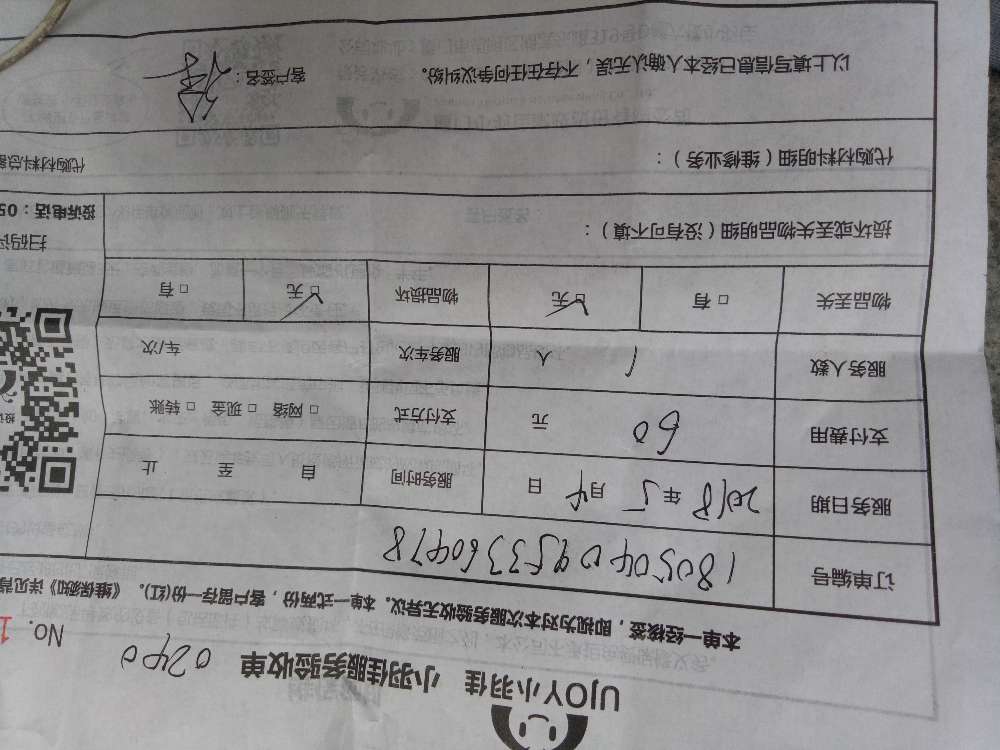 UJOY小羽佳 小羽佳服务验收单 0240
No. 1
本单一经核签，即视为对本次服务验收无异议。本单一式两份，客户留存一份(红)。《维保须知》详见背
订单编号 18050409533 60478
服务日期 2018 年 5 月 4 日 服务时间 自 至 止
支付费用 60 元 支付方式 □ 网络 □ 现金 □ 转账
服务人数 1 人 服务车次 车/次
物品丢失 □ 有 ☑ 无 物品损坏 ☑ 无 □ 有
损坏或丢失物品明细（没有可不填）：
扫码
投诉电话：05
代购材料明细（维修业务）：
代购材料总
以上填写信息已经本人确认无误，不存在任何争议纠纷。 客户签名：